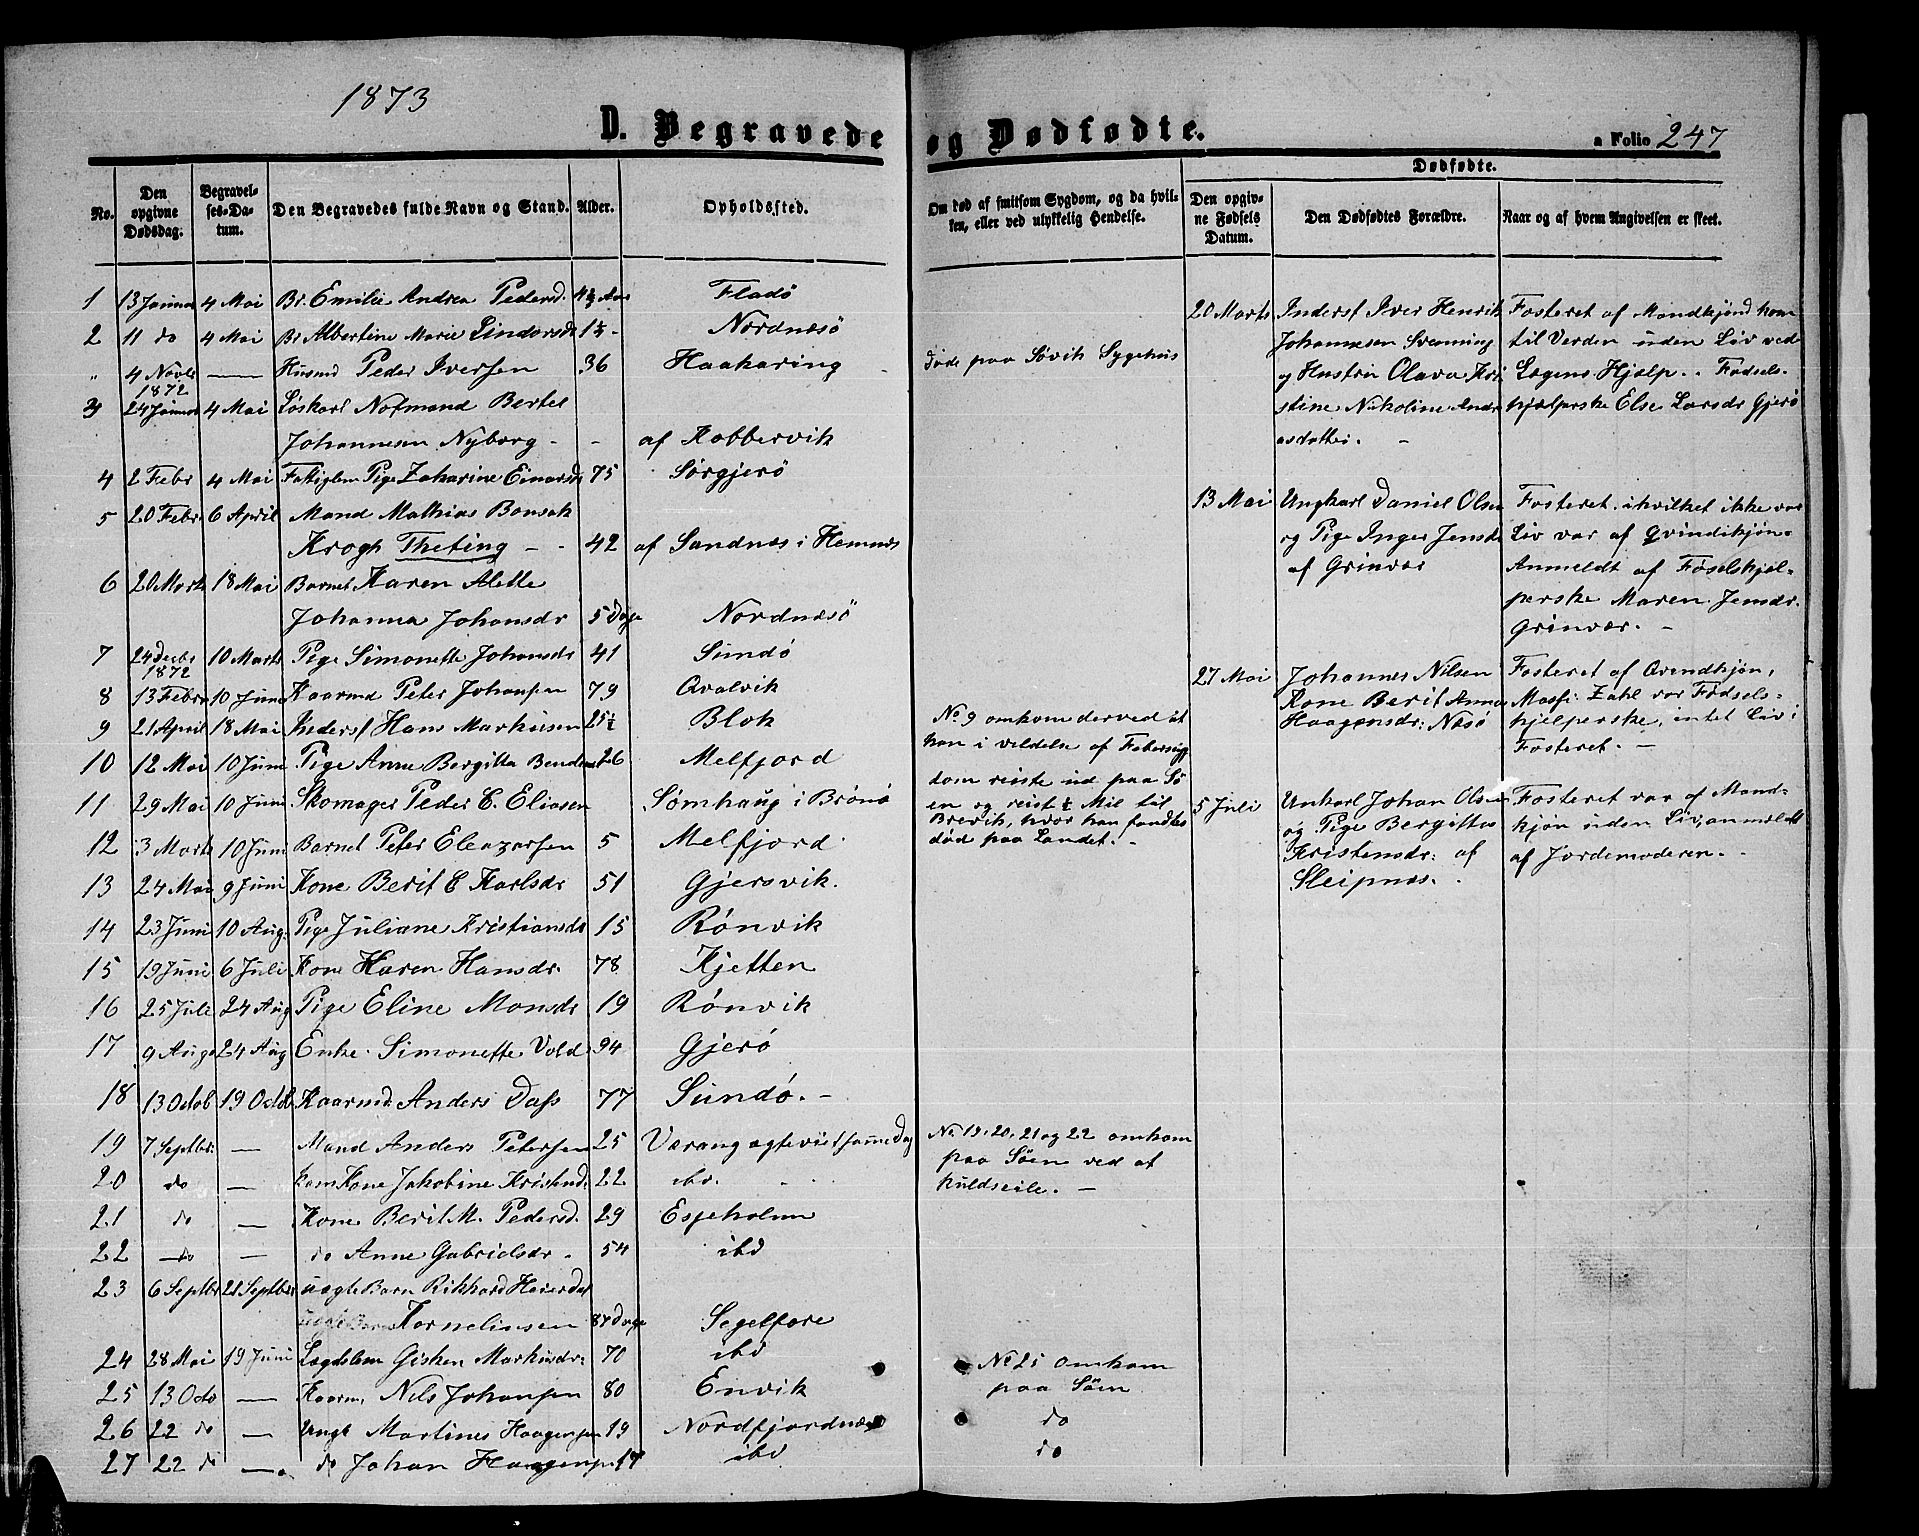 1873
D. Begravede og Dødfødte.
a Folio 247
No.
Den opgivne Dødsdag.
Begravelses-Datum.
Den Begravedes fulde Navn og Stand.
Alder.
Opholdssted.
Om død af smitsom Sygdom, og da hvilken, eller ved ulykkelig Hendelse.
Dødfødte.
Den opgivne Fødsels Datum.
Den Dødfødtes Forældre.
Naar og af hvem Angivelsen er skeet.
1 13 Januar 4 Mai Br. Emilie Andrea Pedersd. Fladø
2 11 do 4 Mai Br Albertine Marie 1½ - Nordnæsø
" 4 Novbr 1872 — Husmd Peder Iversen 36 Haakaring Døde paa Søvik Sygehus
3 24 Januar 4 Mai Løskarl Notmand Bertel
Johannesen Nyborg - - af Kobbervik
4 2 Febr 4 Mai Fattiglem Pige Zakarine Einarsdr 75 Sørgjerø
5 20 Febr 6 April Mand Mathias Bonsak
Krogh Theting - - 42 af Sandnæs i Hemnæs
6 20 Marts 18 Mai Barnet Karen Alette
Johanna Johansdr 5 Dage Nordnæsø
7 24 Decbr 1872 10 Marts Pige Simonette Johansdr 41 Sundø
8 13 Febr 10 Juni Kaarmd Peter Johansen 79 Qvalvik
9 21 April 18 Mai Inderst Hans Markusen 25½ Blok
10 12 Mai 10 Juni Pige Anne Bergitta 26 Melfjord
11 29 Mai 10 Juni Skomager Peder E. Eliasen Sømhaug i Brønø
12 3 Marts 10 Juni Barnet Peter Eleazarsen 5 Melfjord
13 24 Mai 9 Juni Kone Berit E Karlsdr 51 Gjersvik.
14 23 Juni 10 Aug. Pige Juliane Kristiansdr 15 Rønvik
15 19 Juni 6 Juli Kone Karen Hansdr. 78 Kjetten
16 25 Juli 24 Aug Pige Eline Monsdr 19 Rønvik
17 9 Augs 24 Aug Enke Simonette Vold 94 Gjerø
18 13 Octob 19 Octb Kaarmd Anders Dass 77 Sundø. -
19 7 Septbr. — Mand Anders Petersen 25 Værang ægteviet samme Dag
20 do — hans Kone Jakobine Kristensd. 22 ibd.
21 do — Kone Berit M. Pedersd. 29 Esjeholmen
22 do — do Anne Gabrielsdr - 54 ibd
23 6 Septbr 21 Septbr uægte Barn Rikhard Heierdal
Kornelinsen 87 Dage Segelfore
24 28 Mai 19 Juni Lægdslem Gisken Markusdr. 70 ibd
25 13 Octo — Kaarm. Nils Johansen 80 Envik
26 22 do — Ungk Martines Haagensen 19 Nordfjordnæs
27 22 do — do Johan Haagensen 17 ibd
No. 9 omkom derved at
han i vildelse af Febersyg
dom reiste ud paa Sø
en og reist ½ Mil til
Brevik, hvor han fandtes
død paa Landet. -
No. 19, 20, 21 og 22 omkom
paa Søen ved at
kuldseile. -
No 25 omkom
paa Søen
do
do
20 Marts
Inderst Iver Henrik
Johannesen Svenning
og Hustru Olava Kri
stine Nikoline Andr
easdatter. -
Fosteret af Mandkjønd kom
til Verden uden Liv ved
Lægens Hjælp. . Fødsels-
hjælperske Else Larsdr Gjerø
13 Mai
Ungkarl Daniel Olsen
og Pige Inger Jensdr
af Grinvær
Fosteret, ihvilket ikke var
Liv var af Qvindekjøn.
Anmeldt af Føselshjæl-
perske Maren Jensdr.
Grinvær. -
27 Mai
Johannes Nilsen
Kone Berit Anna
Haagensdr: Næsø
Fosteret af Qvendkjøn,
Massi Zahl var Fødsels-
hjelperske, intet Liv i
Fosteret. -
5 Juli
Unkarl Johan Olsen
og Pige Bergitta
Kristensdr: af
Sleipnæs.
Fosteret var af Mand-
kjøn uden Liv, anmeldt
af Jordemoderen. -